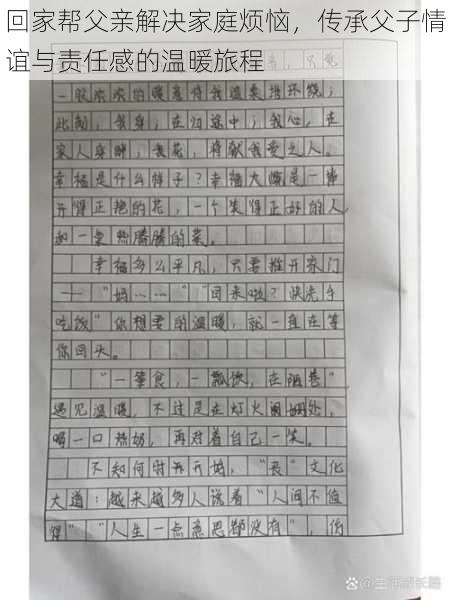 回家帮父亲解决家庭烦恼，传承父子情
谊与责任感的温暖旅程
一股浓浓的暖意将我温柔地环绕；
此刻，我身；在归途中；我心，在
家人身畔；我花，将献我爱之人。
幸福是什么样子？幸福大概是一串
开得正艳的花，一个笑得正好的人
和一桌热腾腾的菜。
幸福多么平凡，只要推开家门
—“妈……”“回来啦？快洗手
吃饭”你想要的温暖，就一直在等
你回头。
“一箪食，一瓢饮，在陋巷”
遇见温暖，不过是在灯火阑珊处，
喝一口热奶，再对着自己一笑。
不知何时开始，“丧”文化
大道：越来越多人说着“人间不值
得”“人生一点意思都没有”，仿